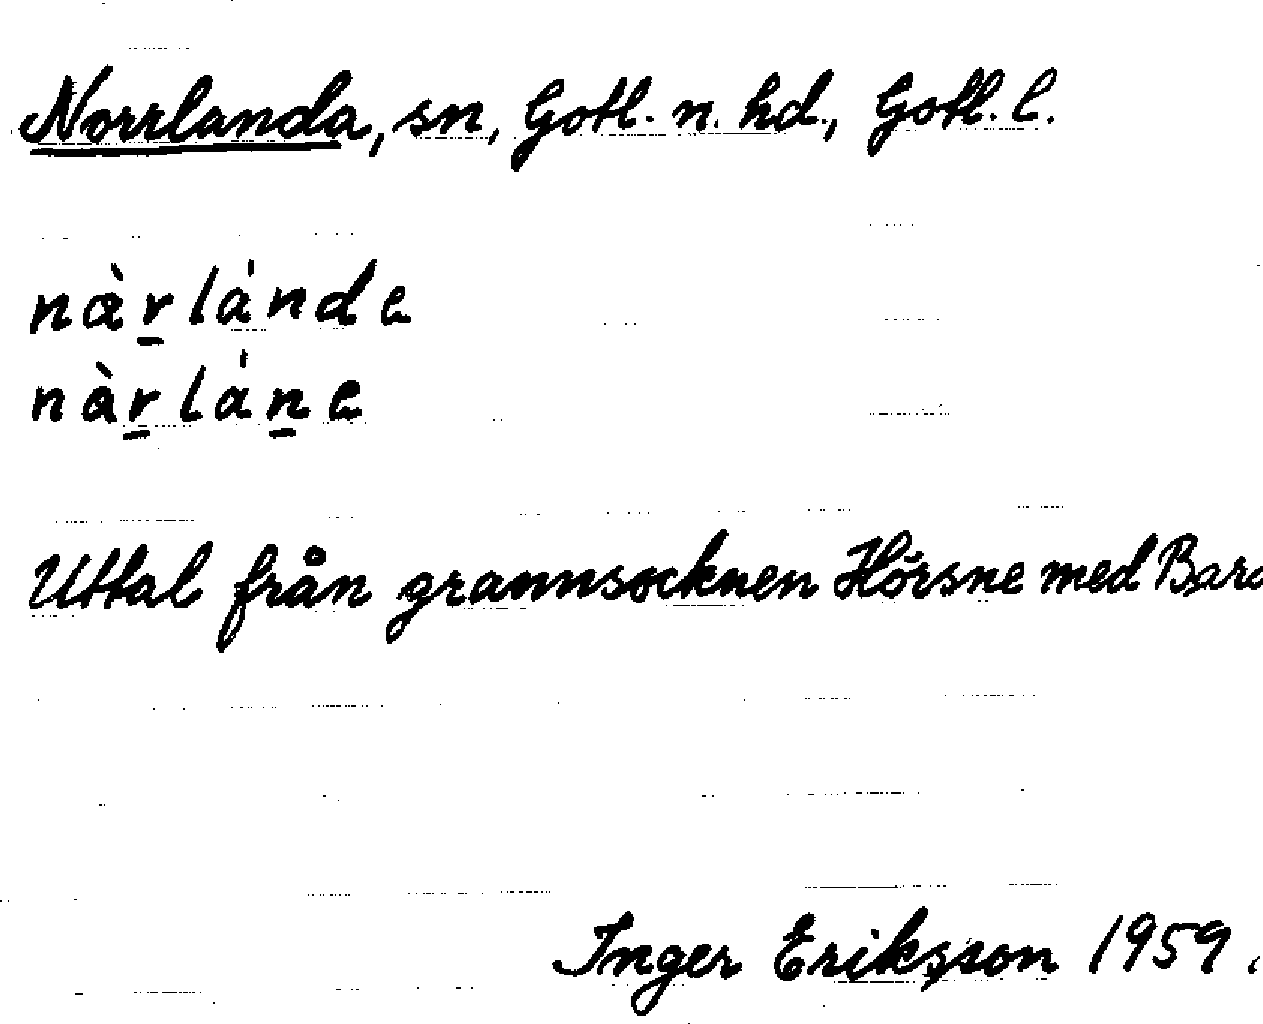 Norrlanda, sn, Gotl. n. hd., Gotl. l.
nàr̲lánde
nàr̲lán̲e
Uttal från grannsocknen Hörsne med Bara
Inger Eriksson 1959.